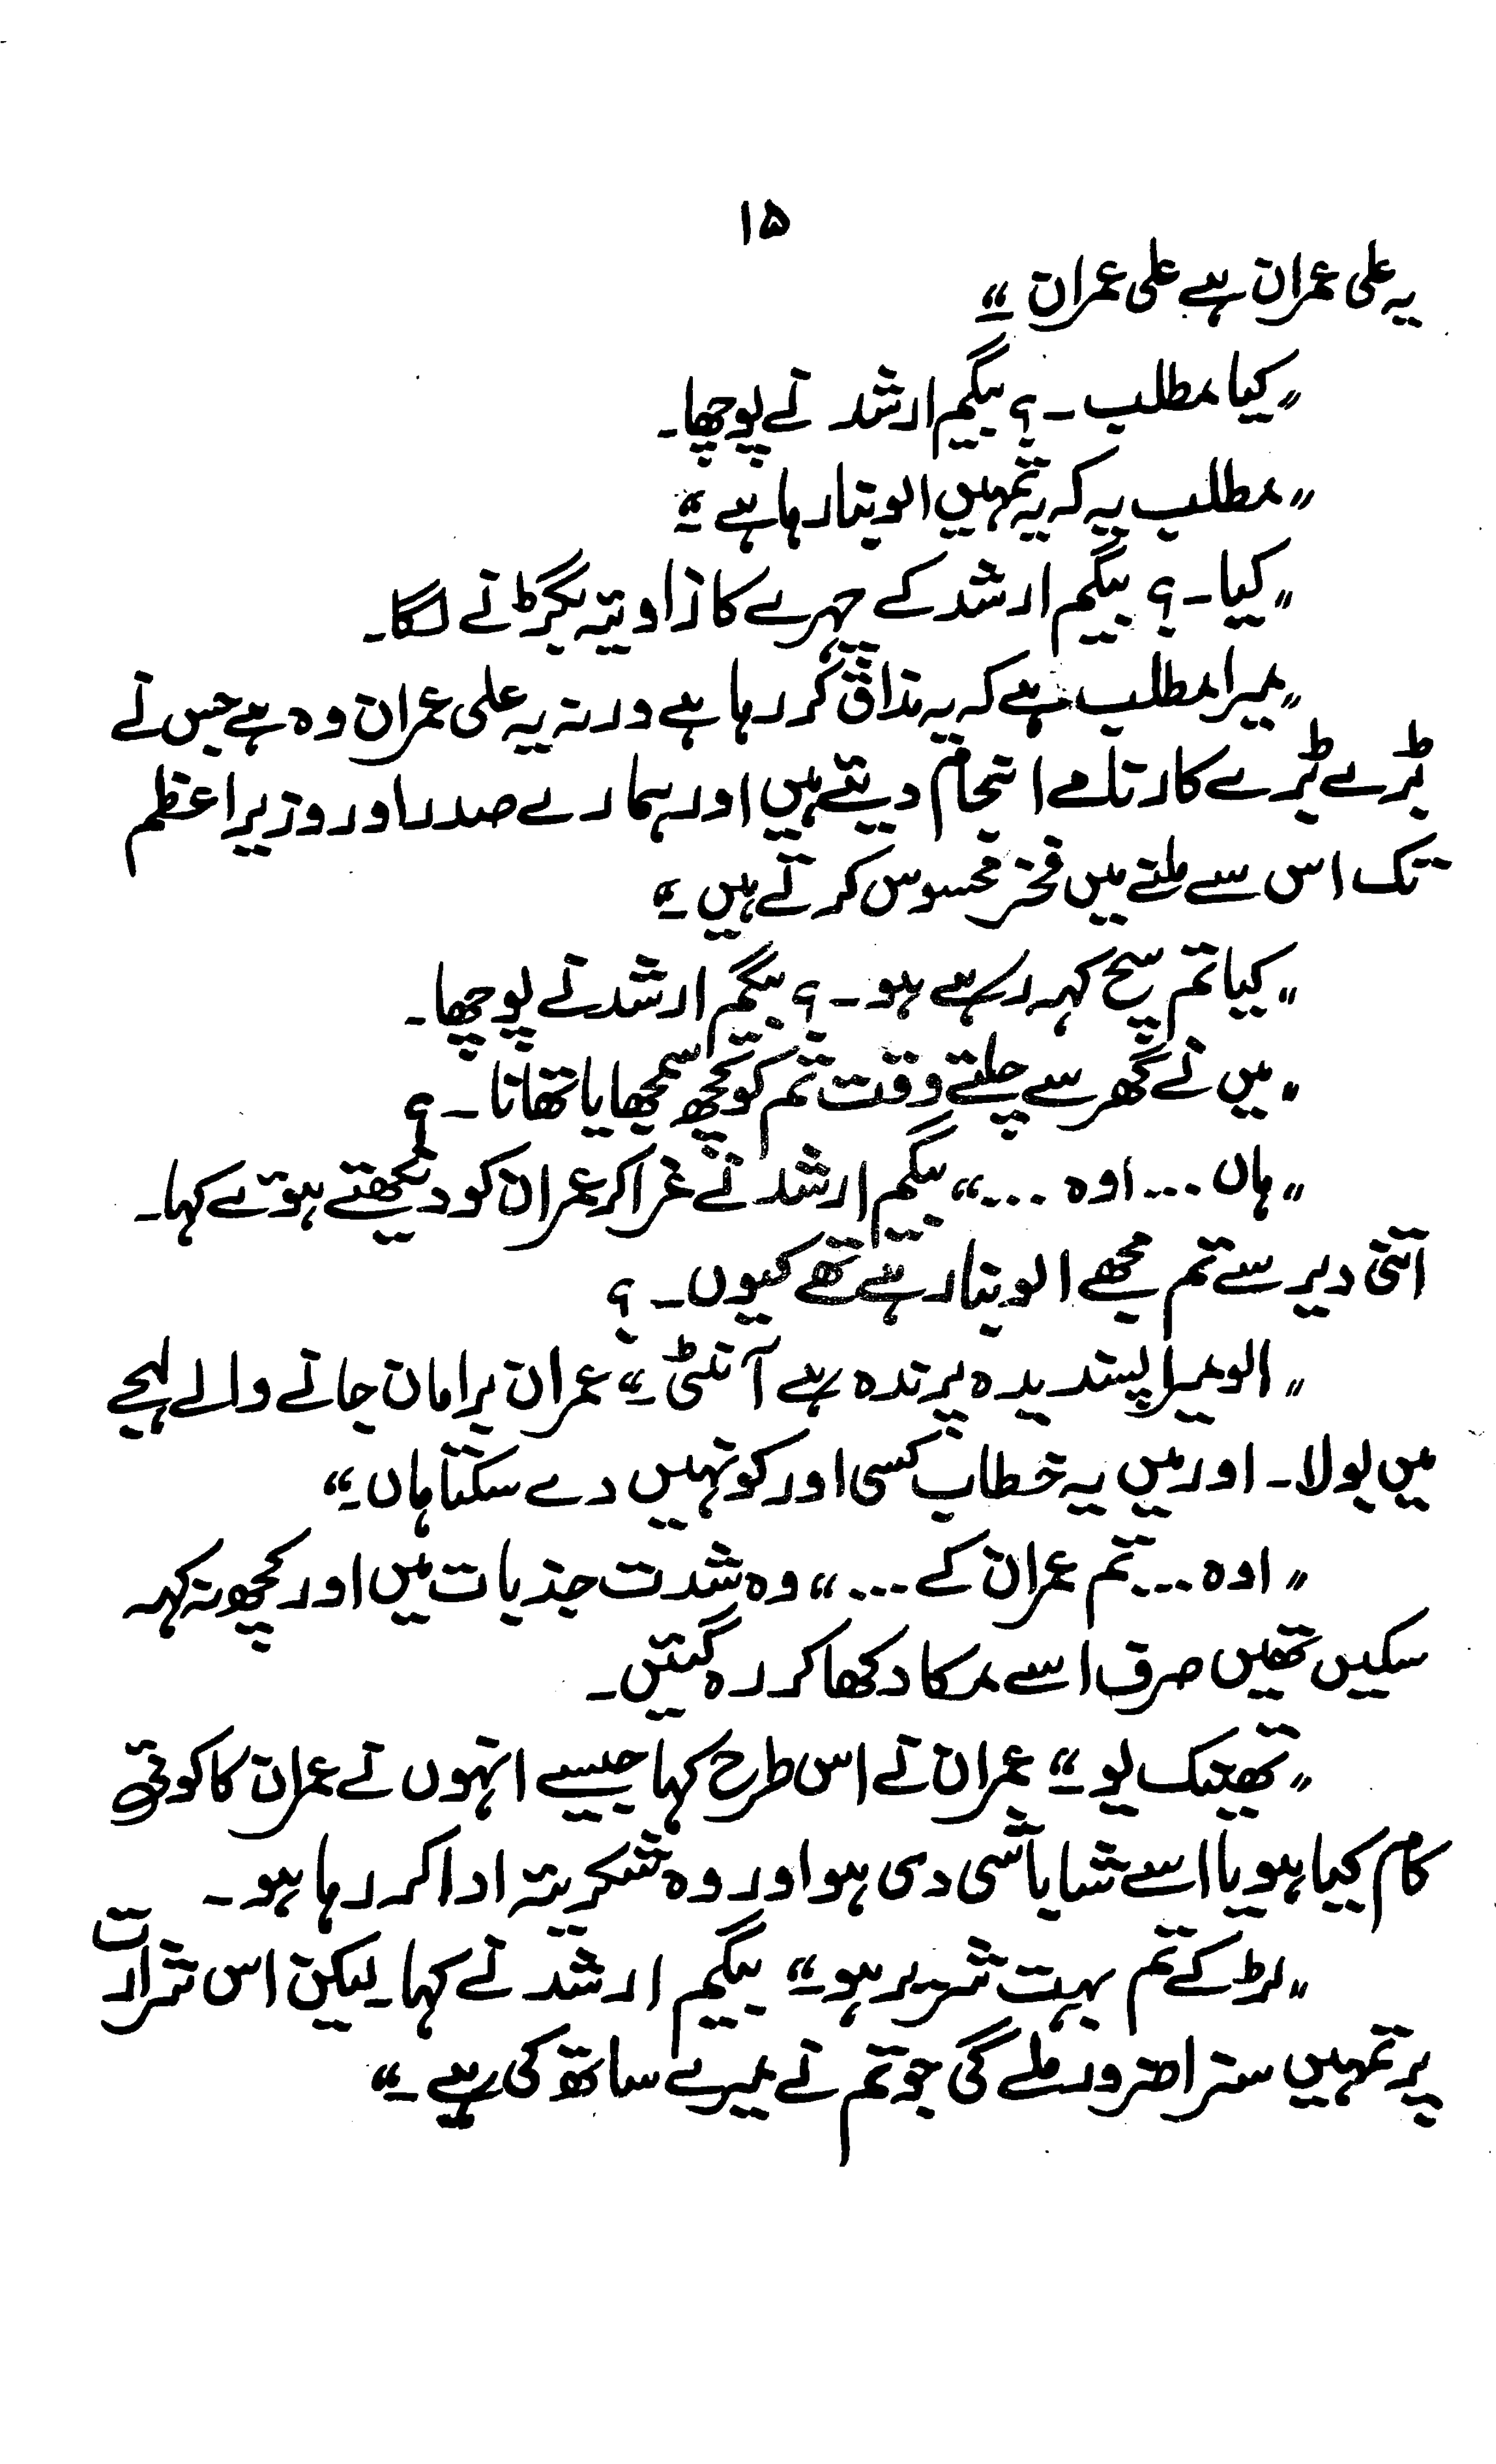 ۱۵
یہ علی عمران ہے علی عمران ۔“
”کیا مطلب ۔؟ بیگم ارشد نے پوچھا۔
”مطلب یہ کہ یہ تمہیں الو بنا رہا ہے ۔“
”کیا ۔؟ بیگم ارشد کے چہرے کا زاویہ بگڑنے لگا۔
”میرا مطلب ہے کہ یہ مذاق کر رہا ہے ورنہ یہ علی عمران وہ ہے جس نے
بڑے بڑے کارنامے انجام دیئے ہیں اور ہمارے صدر اور وزیراعظم
تک اس سے ملنے میں فخر محسوس کرتے ہیں ۔“
”کیا تم سچ کہہ رہے ہو ۔؟ بیگم ارشد نے پوچھا۔
”میں نے گھر سے چلتے وقت تم کو کچھ سمجھایا تھا نا ۔؟
”ہاں ... اوہ ...“ بیگم ارشد نے غرا کر عمران کو دیکھتے ہوئے کہا۔
اتنی دیر سے تم مجھے الو بنا رہے تھے کیوں ۔؟
”الو میرا پسندیدہ پرندہ ہے آنٹی ۔“ عمران برا مان جانے والے لہجے
میں بولا۔ اور میں یہ خطاب کسی اور کو نہیں دے سکتا ہاں ۔“
”اوہ ... تم عمران کے ...“ وہ شدت جذبات میں اور کچھ نہ کہہ
سکیں تھیں صرف اسے مکا دکھا کر رہ گئیں۔
”تھینک یو ۔“ عمران نے اس طرح کہا جیسے انہوں نے عمران کا کوئی
کام کیا ہو یا اسے شاباشی دی ہو اور وہ شکریہ ادا کر رہا ہو۔
”لڑکے تم بہت شریر ہو ۔“ بیگم ارشد نے کہا۔ لیکن اس شرارت
پر تمہیں سزا ضرور ملے گی جو تم نے میرے ساتھ کی ہے ۔“